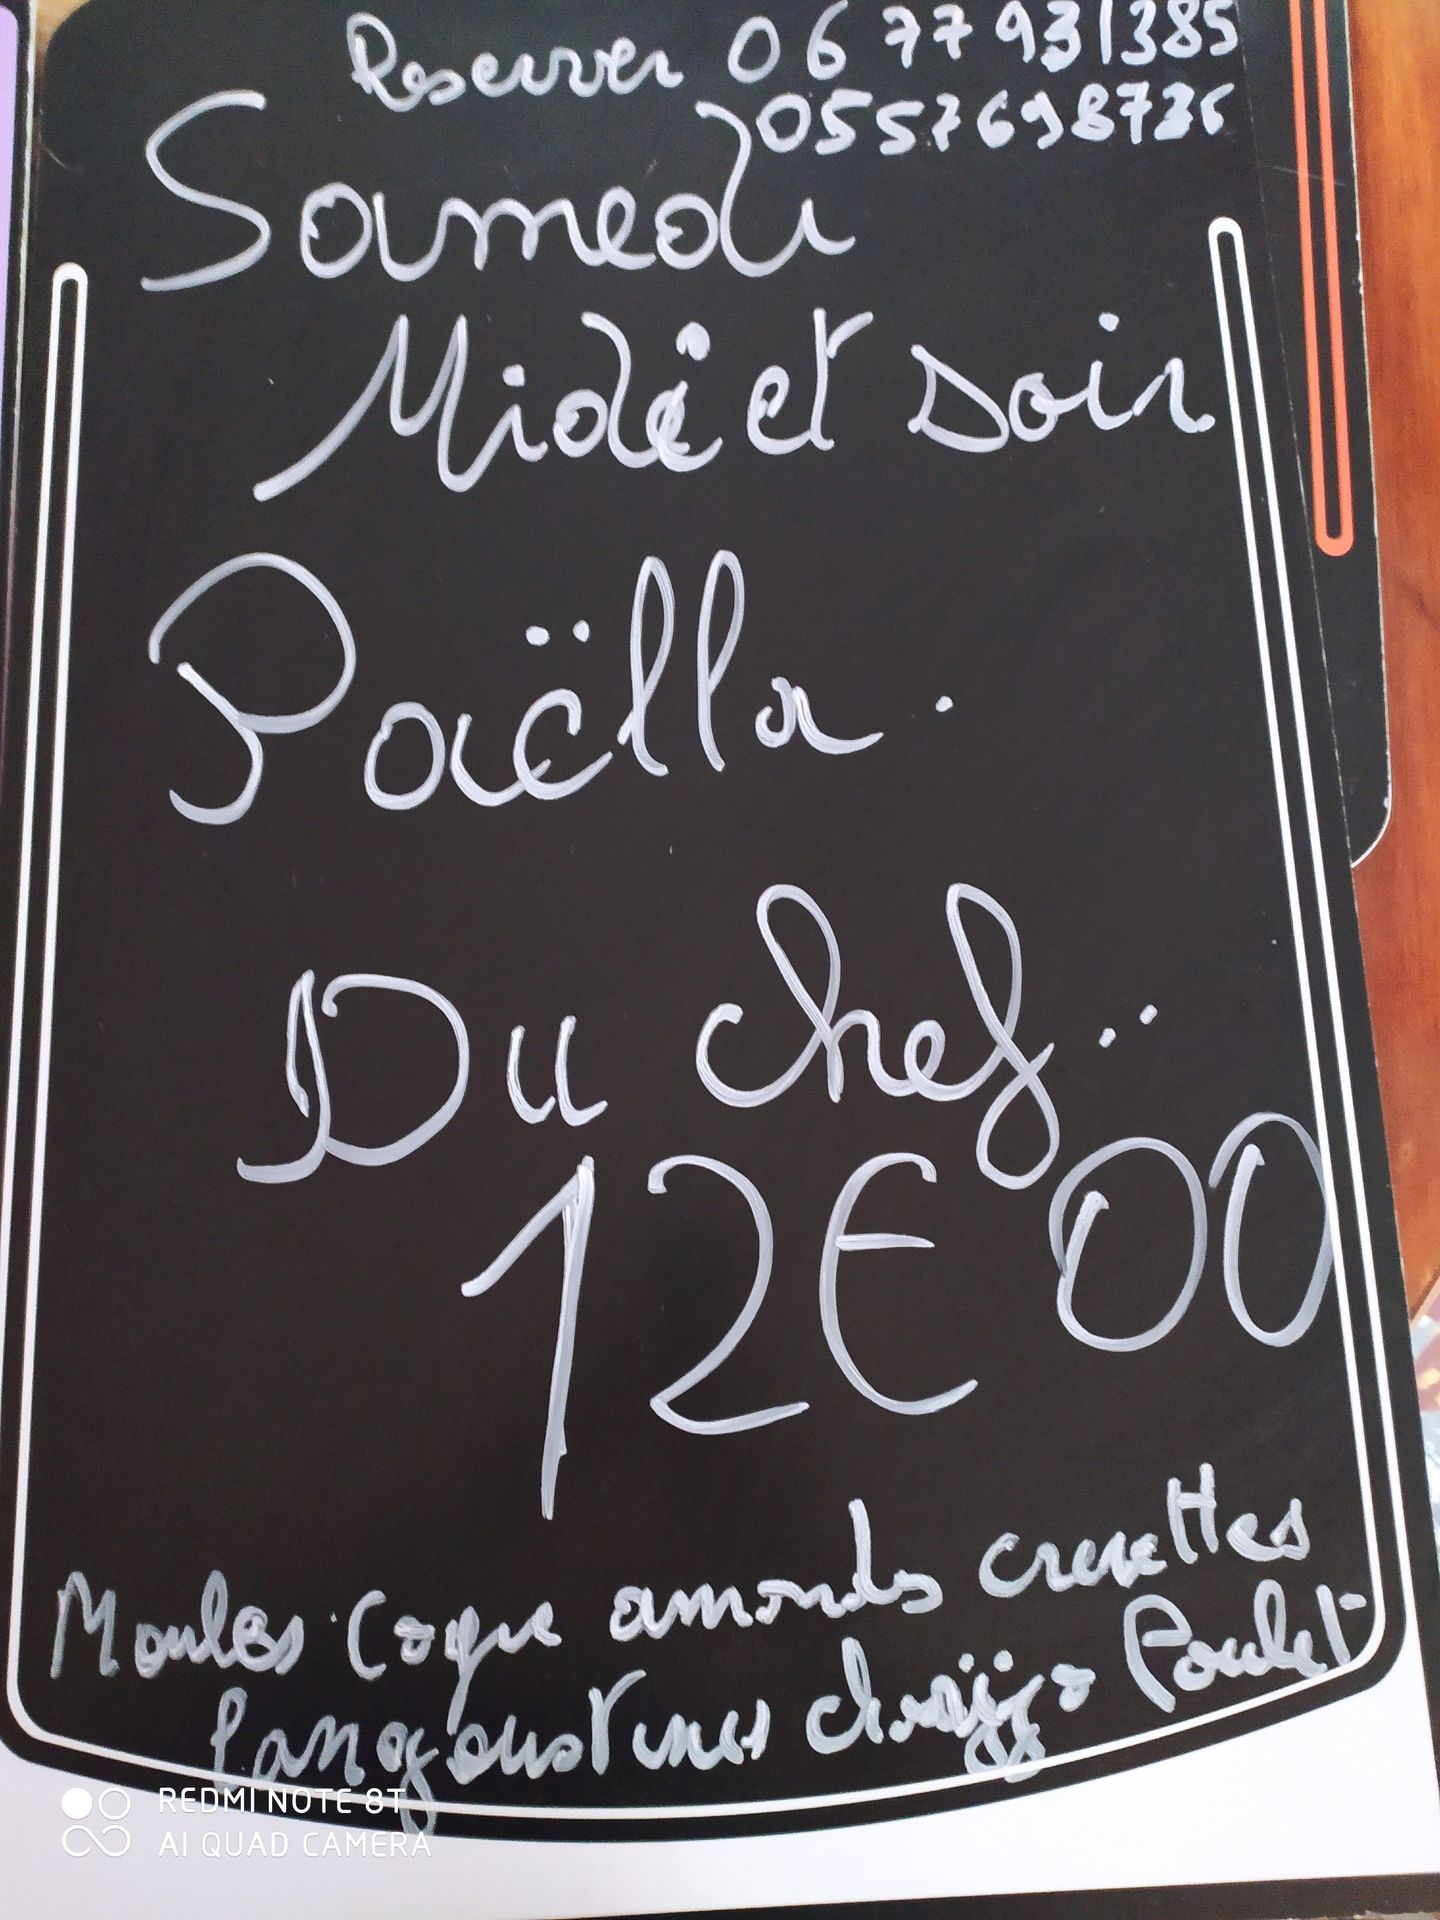 Reserver 0677931385
0557698736
Samedi
Midi et soir
Paëlla.
Du chef..
12€00
Moules. Coque amandes crevettes
Langoustines Poulet
REDMI NOTE 8T
AI QUAD CAMERA